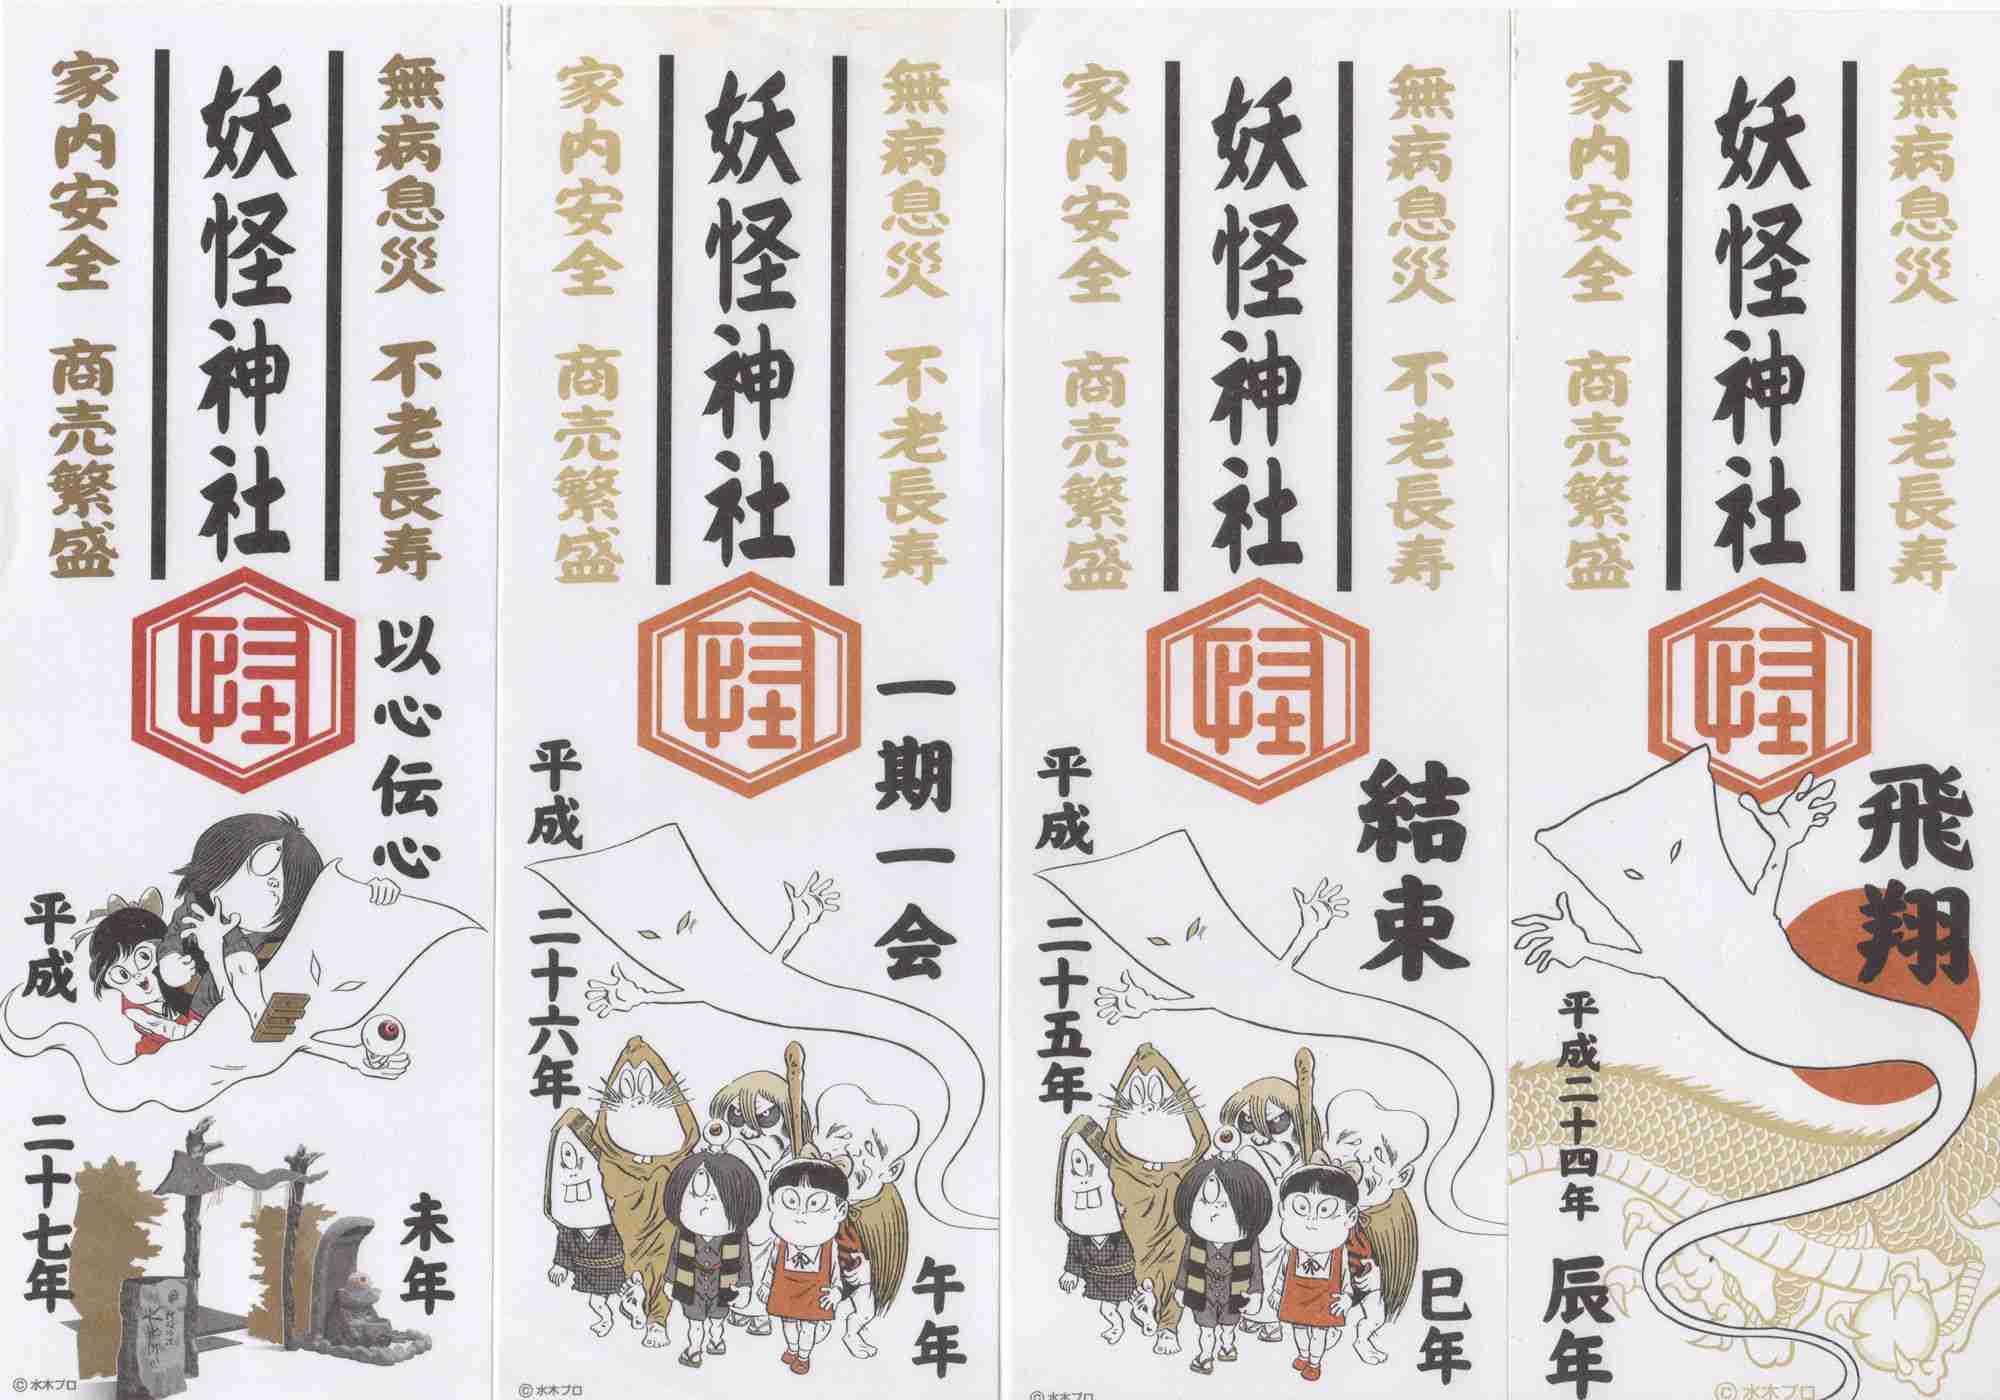 無病息災 不老長寿
妖怪神社
家内安全 商売繁盛
怪
以心伝心
平成
二十七年
未年
©水木プロ
無病息災 不老長寿
妖怪神社
家内安全 商売繁盛
怪
一期一会
平成
二十六年
午年
©水木プロ
無病息災 不老長寿
妖怪神社
家内安全 商売繁盛
怪
結束
平成
二十五年
巳年
©水木プロ
無病息災 不老長寿
妖怪神社
家内安全 商売繁盛
怪
飛翔
平成二十四年
辰年
©水木プロ